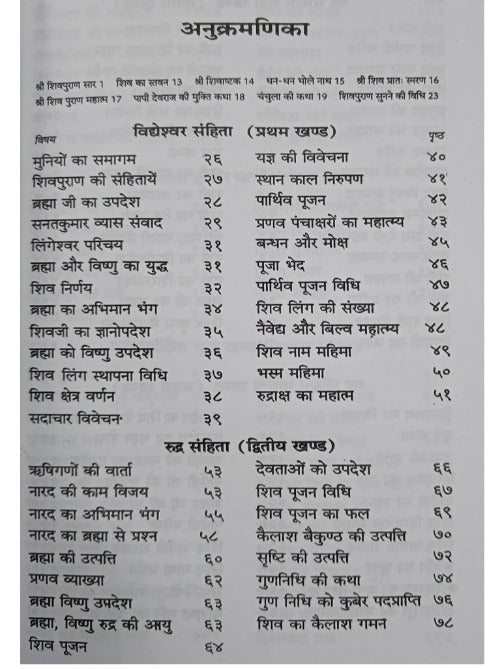 अनुक्रमणिका
श्री शिवपुराण सार 1 शिव का स्तवन 13 श्री शिवाष्टक 14 धन-धन भोले नाथ 15 श्री शिव प्रातः स्मरण 16
श्री शिव पुराण महात्म 17 पापी देवराज की मुक्ति कथा 18 चंचुला की कथा 19 शिवपुराण सुनने की विधि 23
विद्येश्वर संहिता (प्रथम खण्ड)
विषय पृष्ठ
मुनियों का समागम २६ यज्ञ की विवेचना ४०
शिवपुराण की संहितायें २७ स्थान काल निरुपण ४१
ब्रह्मा जी का उपदेश २८ पार्थिव पूजन ४२
सनतकुमार व्यास संवाद २९ प्रणव पंचाक्षरों का महात्म्य ४३
लिंगेश्वर परिचय ३१ बन्धन और मोक्ष ४५
ब्रह्मा और विष्णु का युद्ध ३१ पूजा भेद ४६
शिव निर्णय ३२ पार्थिव पूजन विधि ४७
ब्रह्मा का अभिमान भंग ३४ शिव लिंग की संख्या ४८
शिवजी का ज्ञानोपदेश ३५ नैवेद्य और बिल्व महात्म्य ४८
ब्रह्मा को विष्णु उपदेश ३६ शिव नाम महिमा ४९
शिव लिंग स्थापना विधि ३७ भस्म महिमा ५०
शिव क्षेत्र वर्णन ३८ रुद्राक्ष का महात्म ५१
सदाचार विवेचन ३९
रुद्र संहिता (द्वितीय खण्ड)
ऋषिगणों की वार्ता ५३ देवताओं को उपदेश ६६
नारद की काम विजय ५३ शिव पूजन विधि ६७
नारद का अभिमान भंग ५५ शिव पूजन का फल ६९
नारद का ब्रह्मा से प्रश्न ५८ कैलाश बैकुण्ठ की उत्पत्ति ७०
ब्रह्मा की उत्पत्ति ६० सृष्टि की उत्पत्ति ७२
प्रणव व्याख्या ६२ गुणनिधि की कथा ७४
ब्रह्मा विष्णु उपदेश ६३ गुण निधि को कुबेर पदप्राप्ति ७६
ब्रह्मा, विष्णु रुद्र की आयु ६३ शिव का कैलाश गमन ७८
शिव पूजन ६४